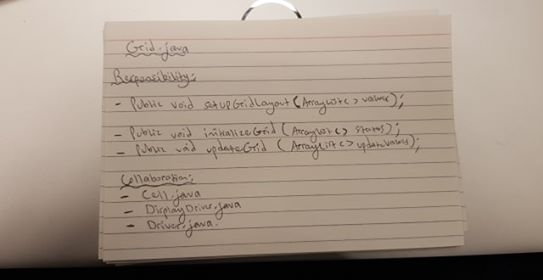 Grid.java
Responsibility:
- Public void setupGridLayout (ArrayList<> values);
- Public void initializeGrid (ArrayList<> status);
- Public void updateGrid (ArrayList<> updateValues);
Collaboration:
- Cell.java
- DisplayDriver.java
- Driver.java.